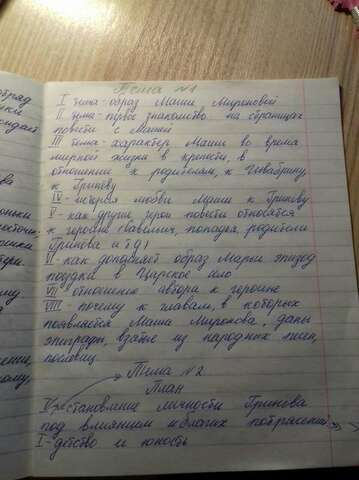 отряд
Тема №1
I тема - образ Маши Мироновой
II тема - первое знакомство на страницах
повести с Машей
III тема - характер Маши во время
мирной жизни в крепости, в
отношении к родителям, к Швабрину,
к Гринёву
IV - история любви Маши к Гринову
V - как другие герои повести относятся
к героине (Савелич, попадья, родители
Гринова и тд)
VI - как дополняет образ Марии эпизод
поездки в Царское село
VII отношение автора к героине
VIII - почему к главам, в которых
появляется Маша Миронова, даны
эпиграфы, взятые из народных песен,
пословиц
Тема №2
План
V - становление личности Гринова
под влиянием
I - детство и юность